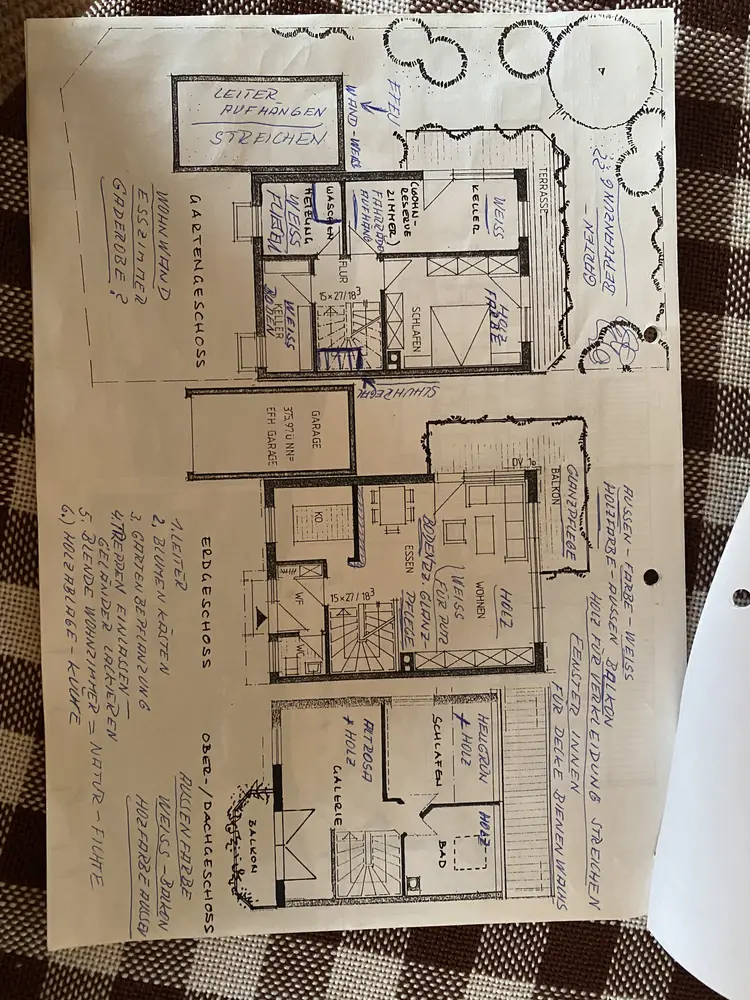 LEITER
AUFHANGEN
STREICHEN
EFEU
WAND-WEISS
WEISS
KELLER
(WOHN-
RESERVE
ZIMMER)
FAHRRAD
AUFHANG
WASCHEN
HEIZUNG
WEISS
FLIESEN
FLUR
15×27/18³
KELLER
WEISS
BODEN
SCHLAFEN
HOLZ
FARBE
TERRASSE
BEPFLANZUNG
GARTEN
GARTENGESCHOSS
WOHNWAND
ESSZIMMER
GADEROBE?
SCHUHREGAL
GARAGE
375,97 Ü NN=
EFH GARAGE
BALKON
GLANZPFLEGE
KO.
ESSEN
WOHNEN
HOLZ
WEISS
FÜR
BODEN
GLANZ-
PFLEGE
WF
WC
15×27/18³
ERDGESCHOSS
AUSSEN-FARBE-WEISS
HOLZFARBE-AUSSEN BALKON
HOLZ FÜR VERKLEIDUNG STREICHEN
FENSTER INNEN
FÜR DECKE BIENENWACHS
1. LEITER
2. BLUMEN KÄSTEN
3. GARTENBEPFLANZUNG
4. TREPPEN EINFASSEN-
GELÄNDER LACKIEREN
5. BLENDE WOHNZIMMER = NATUR-FICHTE
6.) HOLZABLAGE-KÜCHE
HELLGRÜN
+ HOLZ
SCHLAFEN
HOLZ
BAD
ALTROSA
+ HOLZ
GALERIE
BALKON
OBER-/DACHGESCHOSS
AUSSENFARBE
WEISS-BALKON
HOLZFARBE AUSSEN